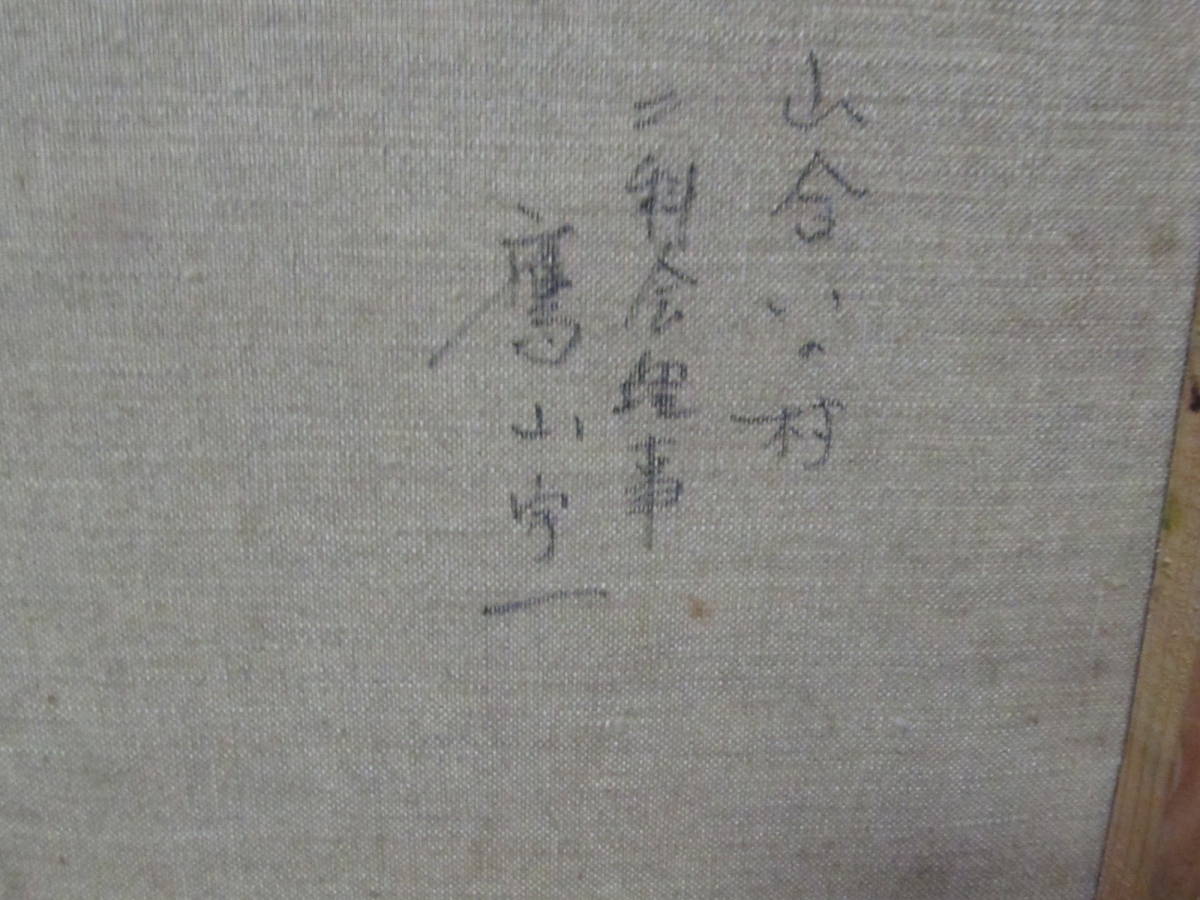 山合いの村
二科会理事
鷹山宇一